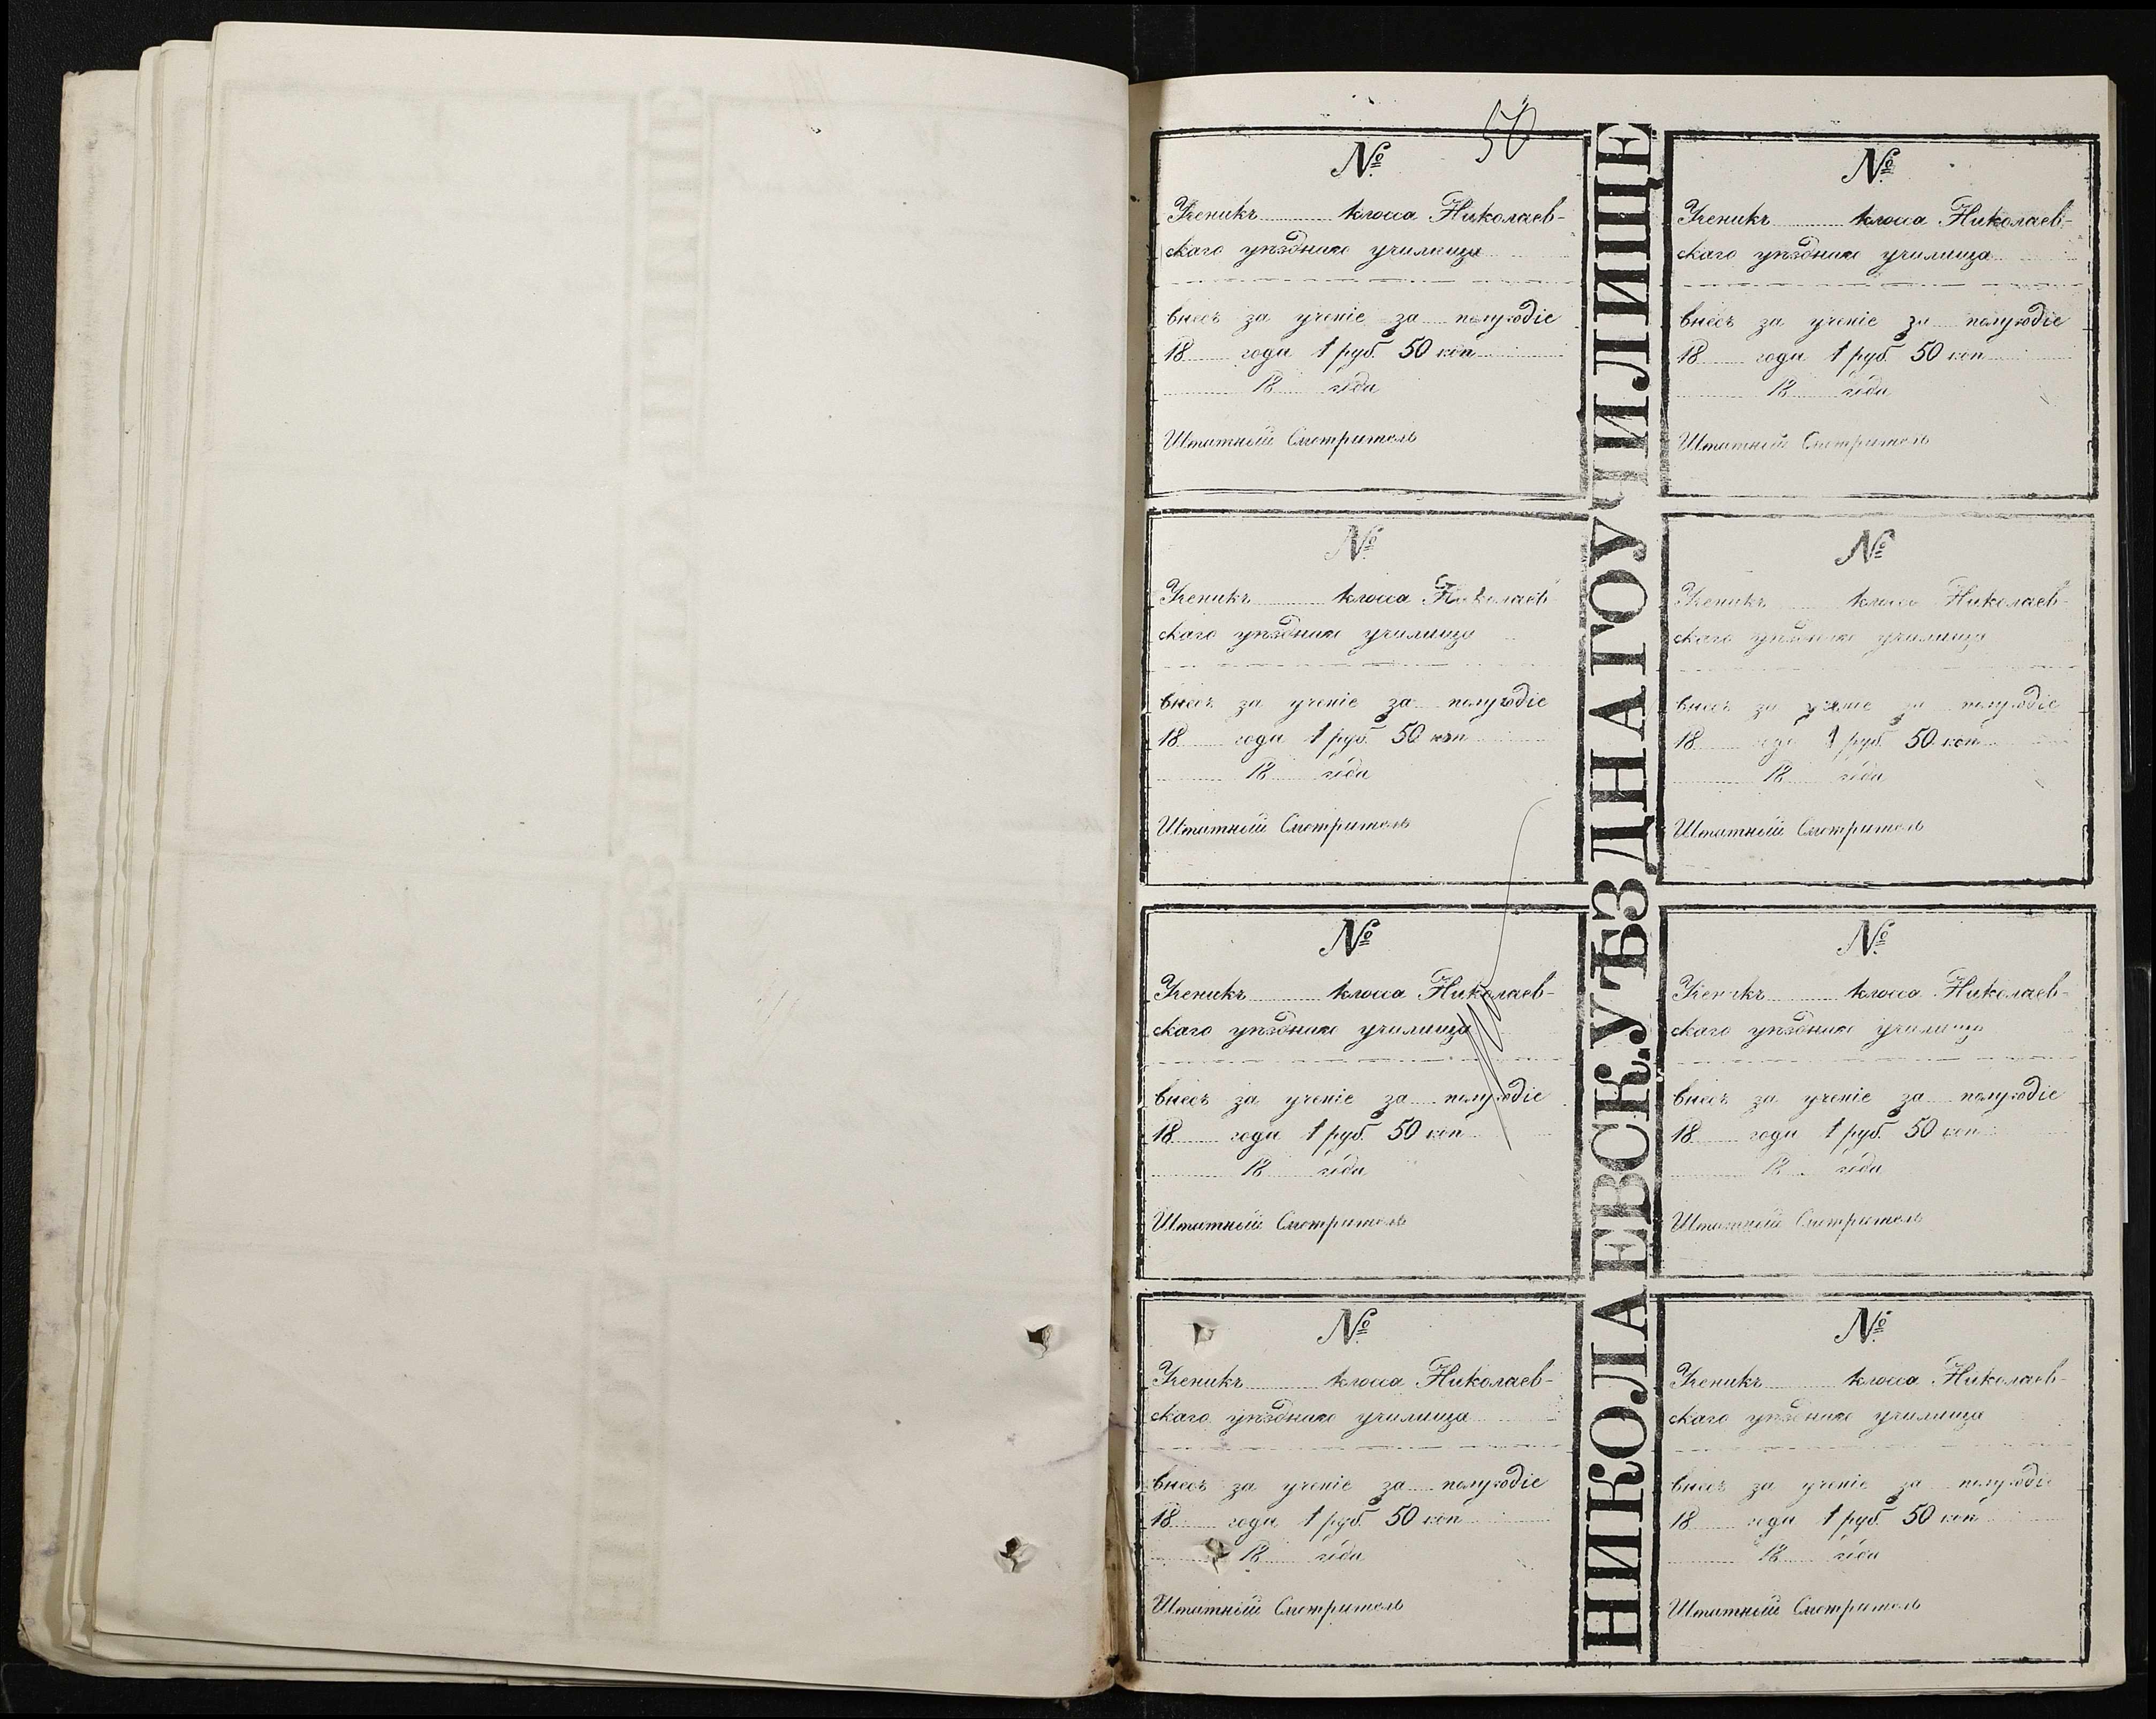 50
№
Ученикъ класса Николаев-
скаго уѣзднаго училища
внесъ за ученіе за полугодіе
18 года 1 руб. 50 коп
18 года
Штатный Смотритель
№
Ученикъ класса Николаев-
скаго уѣзднаго училища
внесъ за ученіе за полугодіе
18 года 1 руб. 50 коп
18 года
Штатный Смотритель
№
Ученикъ класса Николаев-
скаго уѣзднаго училища
внесъ за ученіе за полугодіе
18 года 1 руб. 50 коп
18 года
Штатный Смотритель
№
Ученикъ класса Николаев-
скаго уѣзднаго училища
внесъ за ученіе за полугодіе
18 года 1 руб. 50 коп
18 года
Штатный Смотритель
НИКОЛАЕВСК.УѢЗДНАГОУЧИЛИЩЕ
№
Ученикъ класса Николаев-
скаго уѣзднаго училища
внесъ за ученіе за полугодіе
18 года 1 руб. 50 коп
18 года
Штатный Смотритель
№
Ученикъ класса Николаев-
скаго уѣзднаго училища
внесъ за ученіе за полугодіе
18 года 1 руб. 50 коп
18 года
Штатный Смотритель
№
Ученикъ класса Николаев-
скаго уѣзднаго училища
внесъ за ученіе за полугодіе
18 года 1 руб. 50 коп
18 года
Штатный Смотритель
№
Ученикъ класса Николаев-
скаго уѣзднаго училища
внесъ за ученіе за полугодіе
18 года 1 руб. 50 коп
18 года
Штатный Смотритель